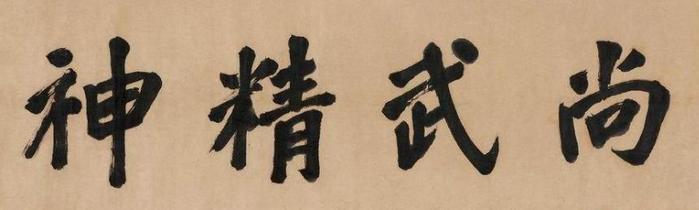 尚武精神